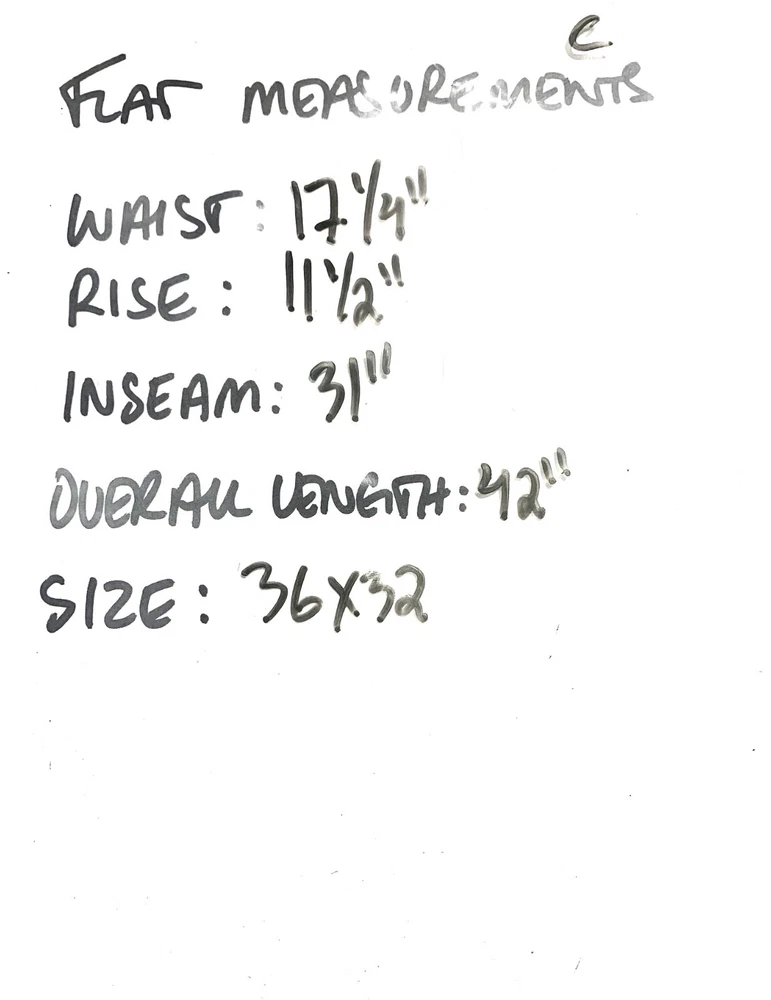 C
FLAT MEASUREMENTS
WAIST: 17 1/4"
RISE: 11 1/2"
INSEAM: 31"
OVERALL LENGTH: 42"
SIZE: 36X32